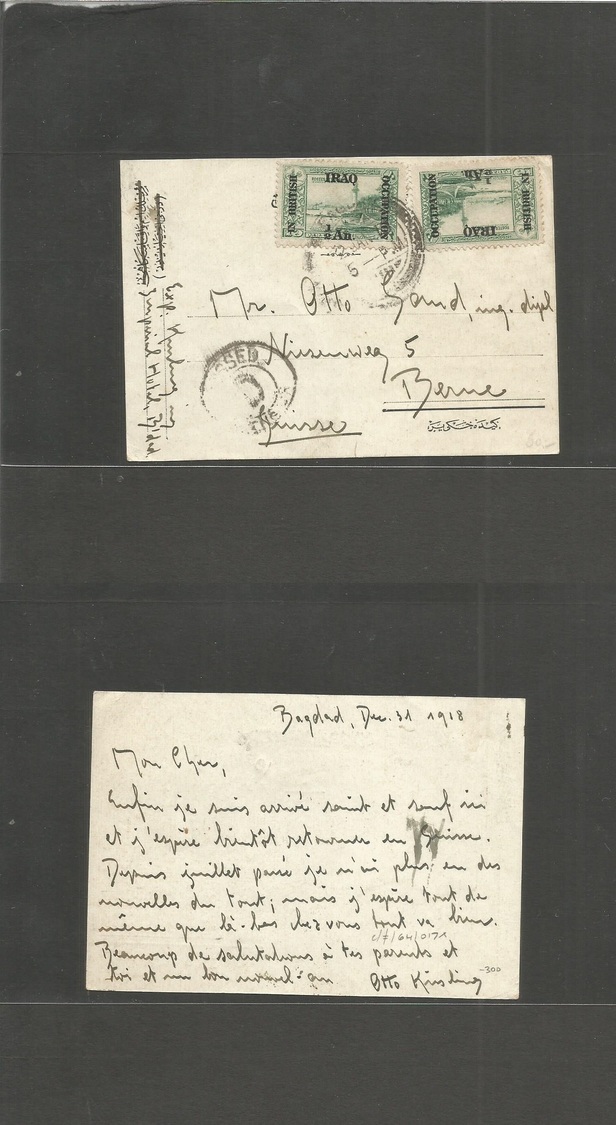 IRAQ
IN BRITISH
OCCUPATION
1/2 An.
IRAQ
IN BRITISH
OCCUPATION
1/2 An.
5
Mr. Otto Gand, ing. dipl
Niesenweg 5
Berne
Suisse
SSED
80.-
Bagdad, Dec. 31 1918
Mon Cher,
Enfin je suis arrivé saint et sauf ici
et j'espère bientôt retourner en Suisse.
Depuis juillet passé je n'ai plus eu des
nouvelles du tout; mais j'espère tout de
même que là-bas chez vous tout va bien.
c/7/64/0171
Beaucoup de salutations à tes parents et
toi et un bon nouvel-an
Otto Kissling
-300